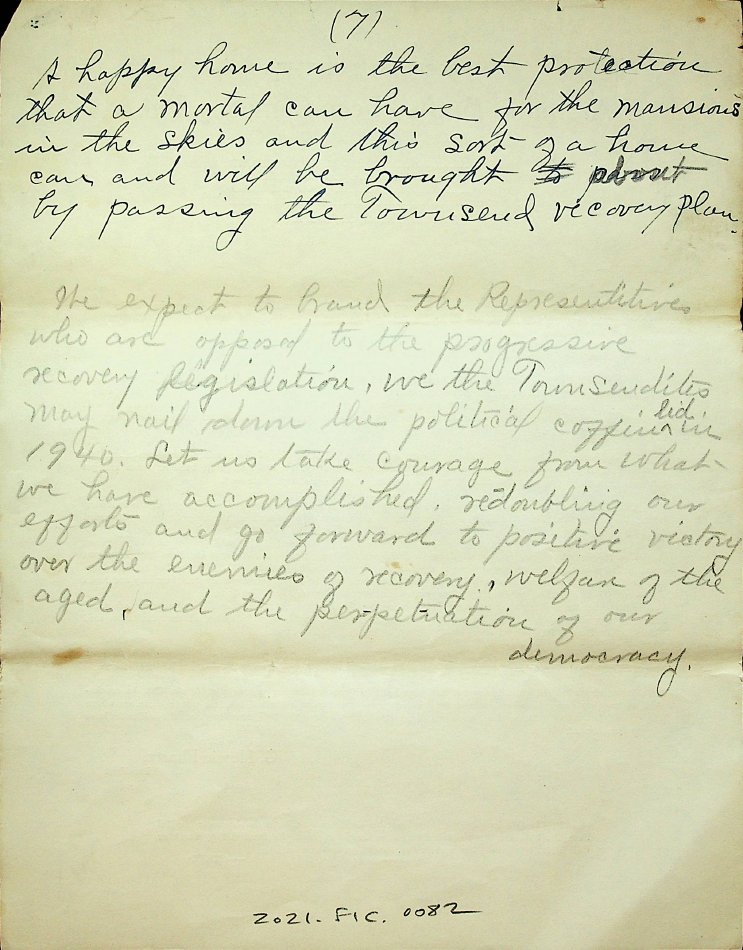 (7)
A happy home is the best protection
that a mortal can have for the mansions
in the skies and this sort of a home
can and will be brought to about
by passing the Townsend recovery plan.
We expect to brand the Representitives
who are opposed to the progressive
recovery legislation, we the Townsendites
may nail down the political coffin lid in
1940. Let us take courage from what
we have accomplished, redoubling our
efforts and go forward to positive victory
over the enemies of recovery, welfare of the
aged, and the perpetuation of our
democracy.
2021. FIC. 0082